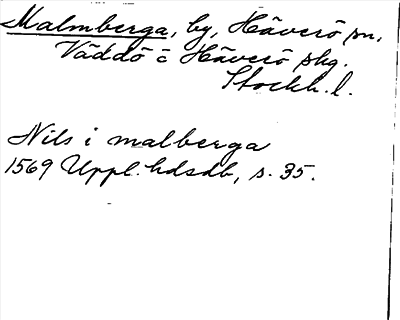 Malmberga, by, Häverö sn,
Väddö o Häverö skg.
Stockh. l.
Nils i malberga
1569 Uppl. hdsdb, s. 35.